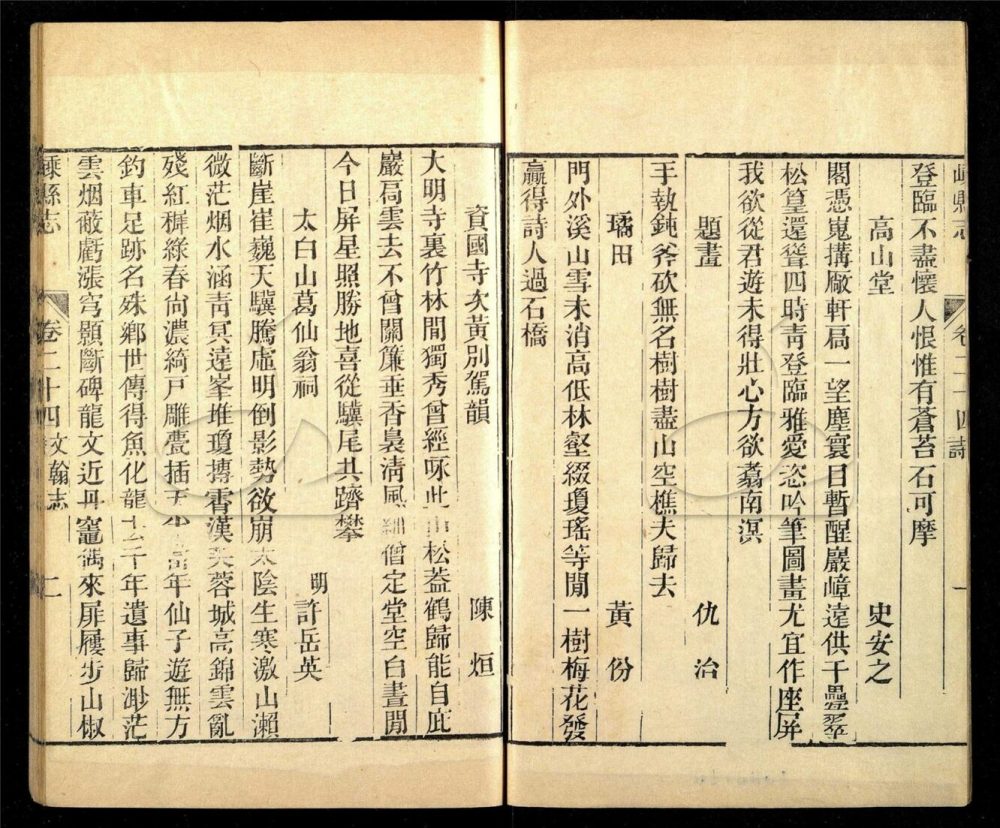 嵊縣志 卷二十四 詩 一
登臨不盡懷人恨惟有蒼苔石可摩
高山堂 史安之
閣憑嵬搆厰軒局一望塵寰目暫醒巖嶂遠供千疊翠
松篁還聳四時靑登臨雅愛恣吟筆圖畫尤宜作座屏
我欲從君遊未得壯心方欲翥南溟
題畫 仇治
手執鈍斧砍無名樹樹盡山空樵夫歸去
璚田 黃份
門外溪山雪未消高低林壑綴瓊瑤等閒一樹梅花發
贏得詩人過石橋
資國寺次黃別駕韻 陳烜
大明寺裏竹林閒獨秀曾經咏此山松蓋鶴歸能自庇
巖扃雲去不曾關簾垂香裊淸風細僧定堂空白晝閒
今日屏星照勝地喜從驥尾共躋攀
太白山葛仙翁祠 明許岳英
斷崖崔巍天驥騰虛明倒影勢欲崩太陰生寒激山瀨
微茫烟水涵靑冥遠峯堆瓊摶霄漢芙蓉城高錦雲亂
殘紅穉綠春尙濃綺戶雕甍插天水當年仙子遊無方
釣車足跡名殊鄕世傳得魚化龍去千年遺事歸渺茫
雲烟蔽虧漲穹顥斷碑龍文近丹竈偶來扉屨步山椒
嵊縣志 卷二十四 文翰志 二